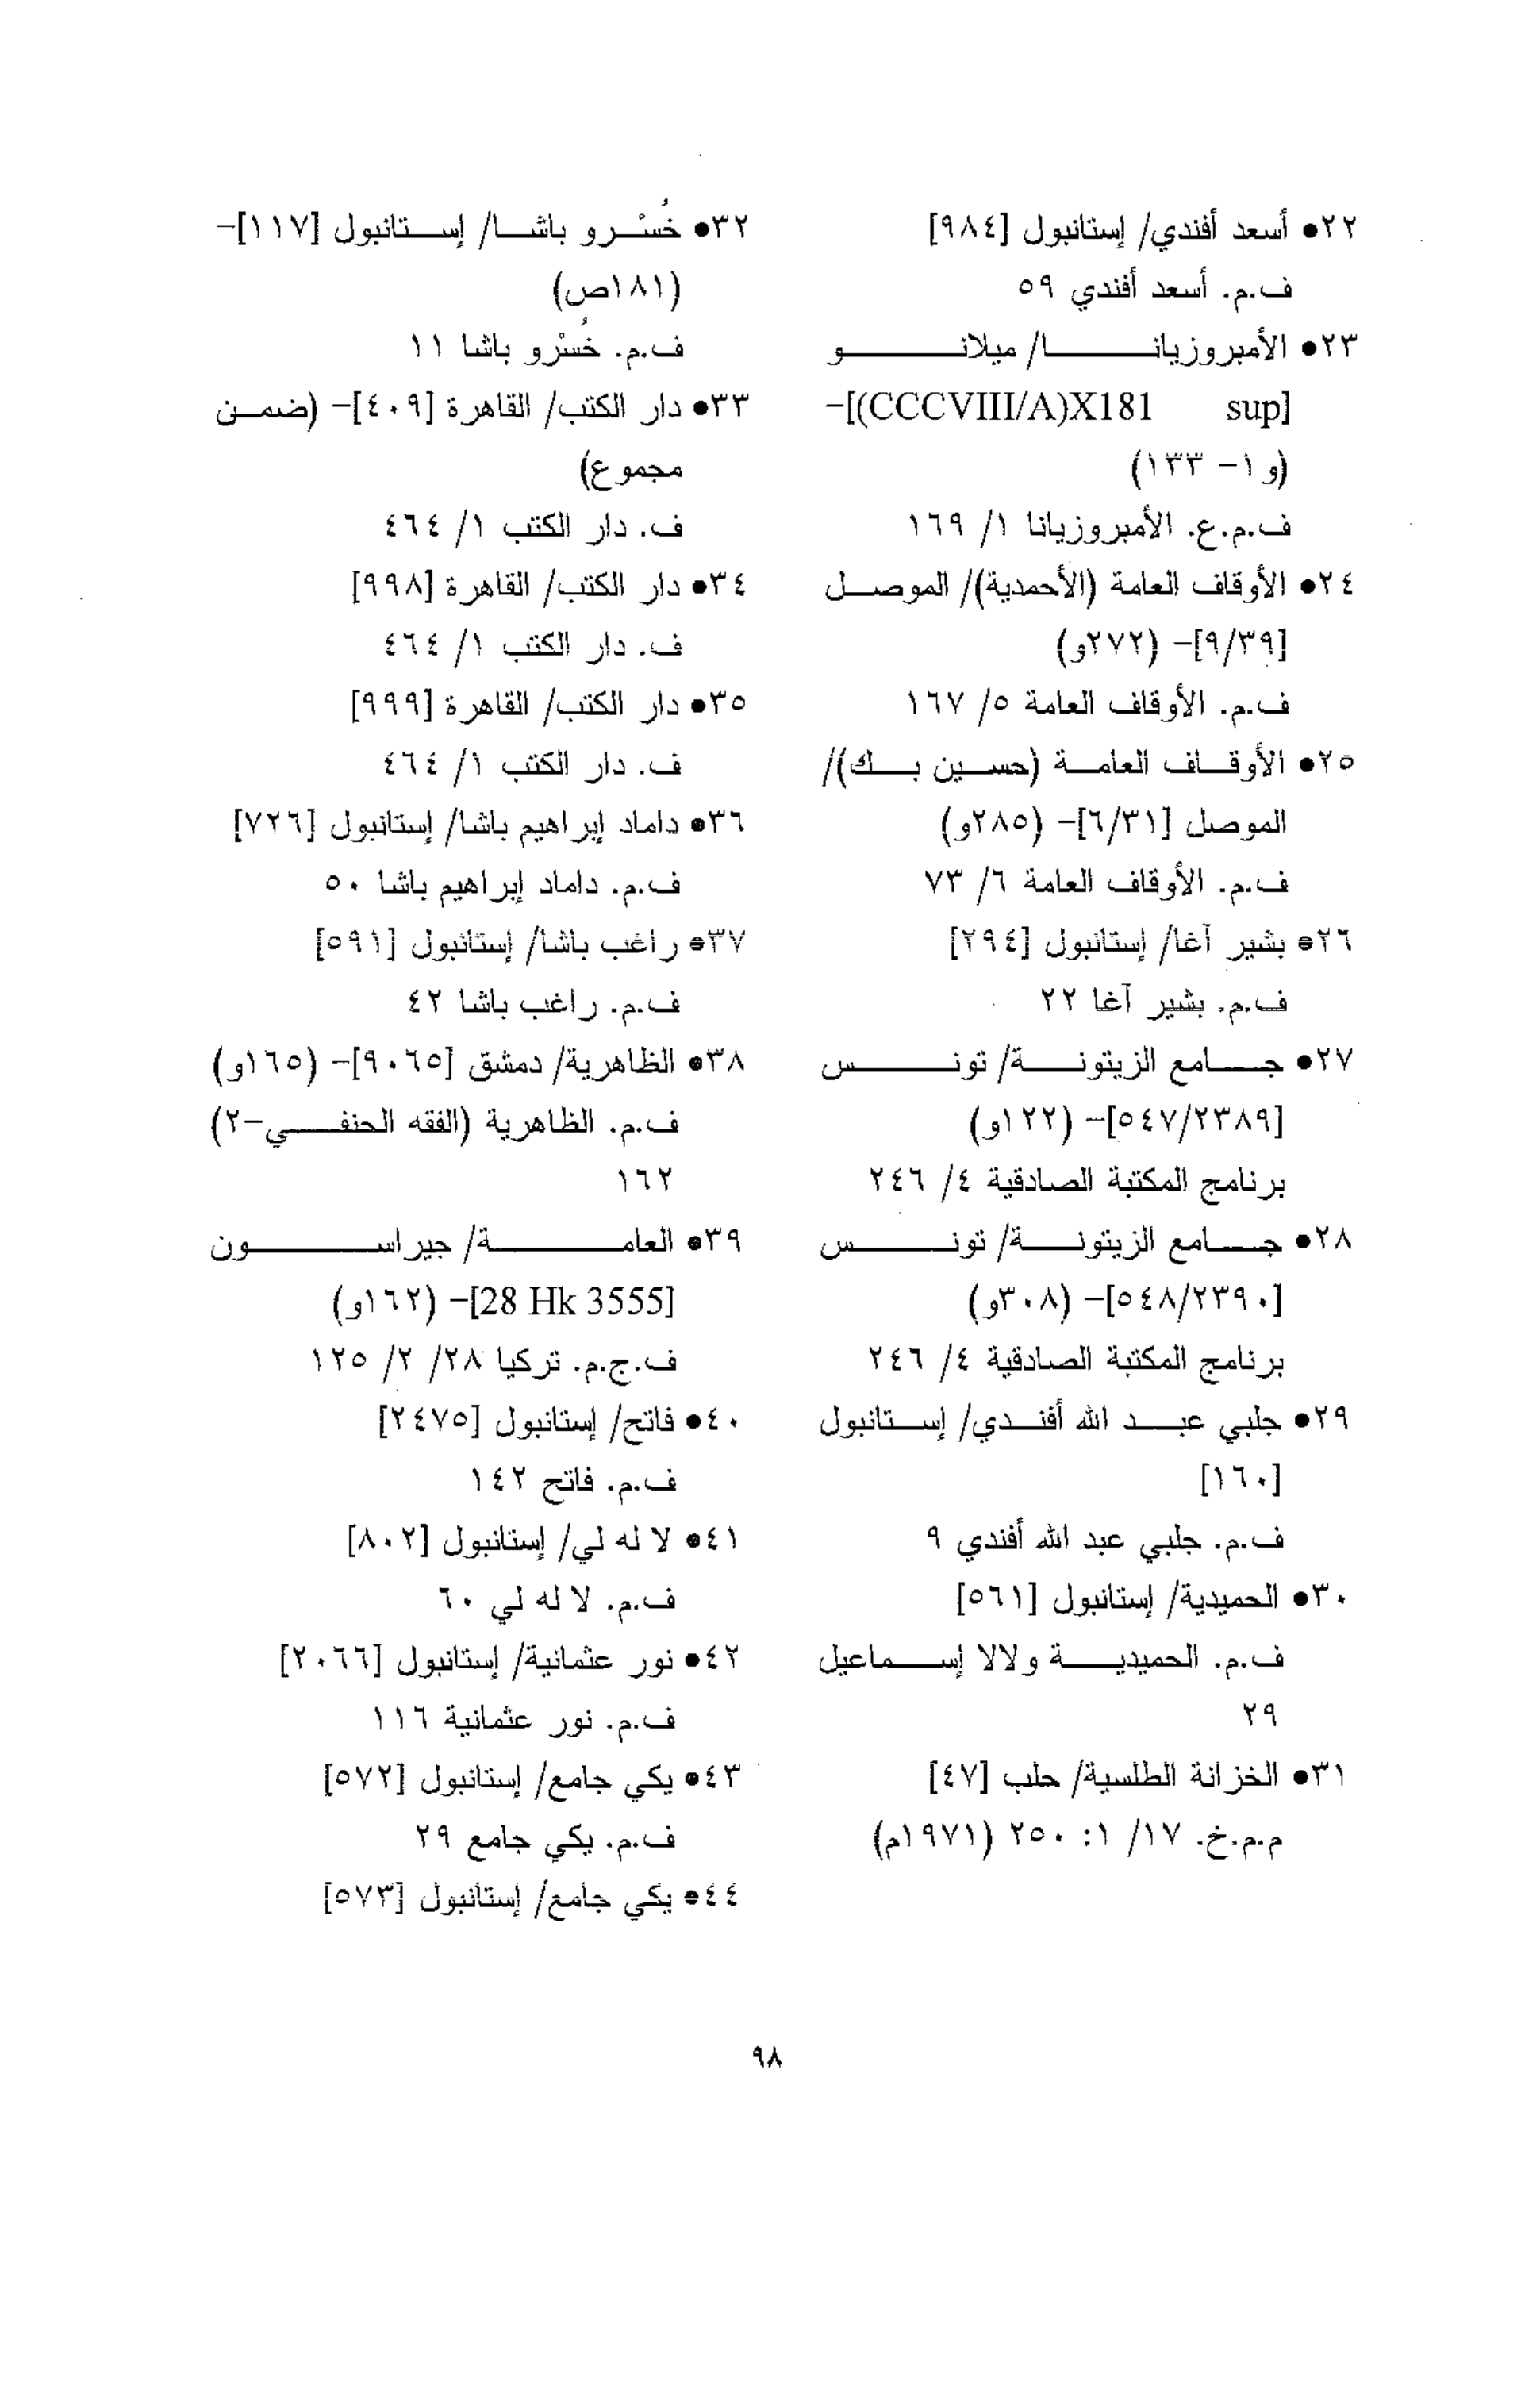 ٢٢• أسعد أفندي/ إستانبول [٩٨٤]
ف.م. أسعد أفندي ٥٩
٢٣• الأمبروزيانا/ ميلانو
[(CCCVIII/A)X181 sup]-
(و١- ١٣٣)
ف.م.ع. الأمبروزيانا ١/ ١٦٩
٢٤• الأوقاف العامة (الأحمدية)/ الموصل
[٩/٣٩]- (٢٧٢و)
ف.م. الأوقاف العامة ٥/ ١٦٧
٢٥• الأوقاف العامة (حسين بك)/
الموصل [٦/٣١]- (٢٨٥و)
ف.م. الأوقاف العامة ٦/ ٧٣
٢٦• بشير آغا/ إستانبول [٢٩٤]
ف.م. بشير آغا ٢٢
٢٧• جامع الزيتونة/ تونس
[٥٤٧/٢٣٨٩]- (١٢٢و)
برنامج المكتبة الصادقية ٤/ ٢٤٦
٢٨• جامع الزيتونة/ تونس
[٥٤٨/٢٣٩٠]- (٣٠٨و)
برنامج المكتبة الصادقية ٤/ ٢٤٦
٢٩• جلبي عبد الله أفندي/ إستانبول
[١٦٠]
ف.م. جلبي عبد الله أفندي ٩
٣٠• الحميدية/ إستانبول [٥٦١]
ف.م. الحميدية ولالا إسماعيل
٢٩
٣١• الخزانة الطلسية/ حلب [٤٧]
م.م.خ. ١٧/ ١: ٢٥٠ (١٩٧١م)
٣٢• خُسْرو باشا/ إستانبول [١١٧]-
(١٨١ص)
ف.م. خُسْرو باشا ١١
٣٣• دار الكتب/ القاهرة [٤٠٩]- (ضمن
مجموع)
ف. دار الكتب ١/ ٤٦٤
٣٤• دار الكتب/ القاهرة [٩٩٨]
ف. دار الكتب ١/ ٤٦٤
٣٥• دار الكتب/ القاهرة [٩٩٩]
ف. دار الكتب ١/ ٤٦٤
٣٦• داماد إبراهيم باشا/ إستانبول [٧٢٦]
ف.م. داماد إبراهيم باشا ٥٠
٣٧• راغب باشا/ إستانبول [٥٩١]
ف.م. راغب باشا ٤٢
٣٨• الظاهرية/ دمشق [٩٠٦٥]- (١٦٥و)
ف.م. الظاهرية (الفقه الحنفي-٢)
١٦٢
٣٩• العامة/ جيراسون
[28 Hk 3555]- (١٦٢و)
ف.ج.م. تركيا ٢٨/ ٢/ ١٢٥
٤٠• فاتح/ إستانبول [٢٤٧٥]
ف.م. فاتح ١٤٢
٤١• لا له لي/ إستانبول [٨٠٢]
ف.م. لا له لي ٦٠
٤٢• نور عثمانية/ إستانبول [٢٠٦٦]
ف.م. نور عثمانية ١١٦
٤٣• يكي جامع/ إستانبول [٥٧٢]
ف.م. يكي جامع ٢٩
٤٤• يكي جامع/ إستانبول [٥٧٣]
٩٨